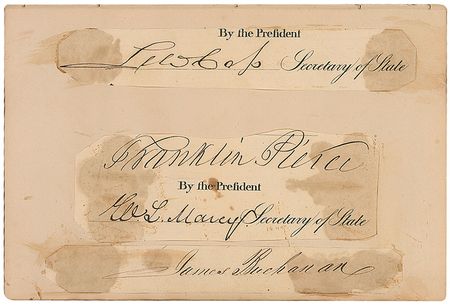 By the Preſident
Lew Caſs Secretary of State
Franklin Pierce
By the Preſident
W. L. Marcy Secretary of State
James Buchanan